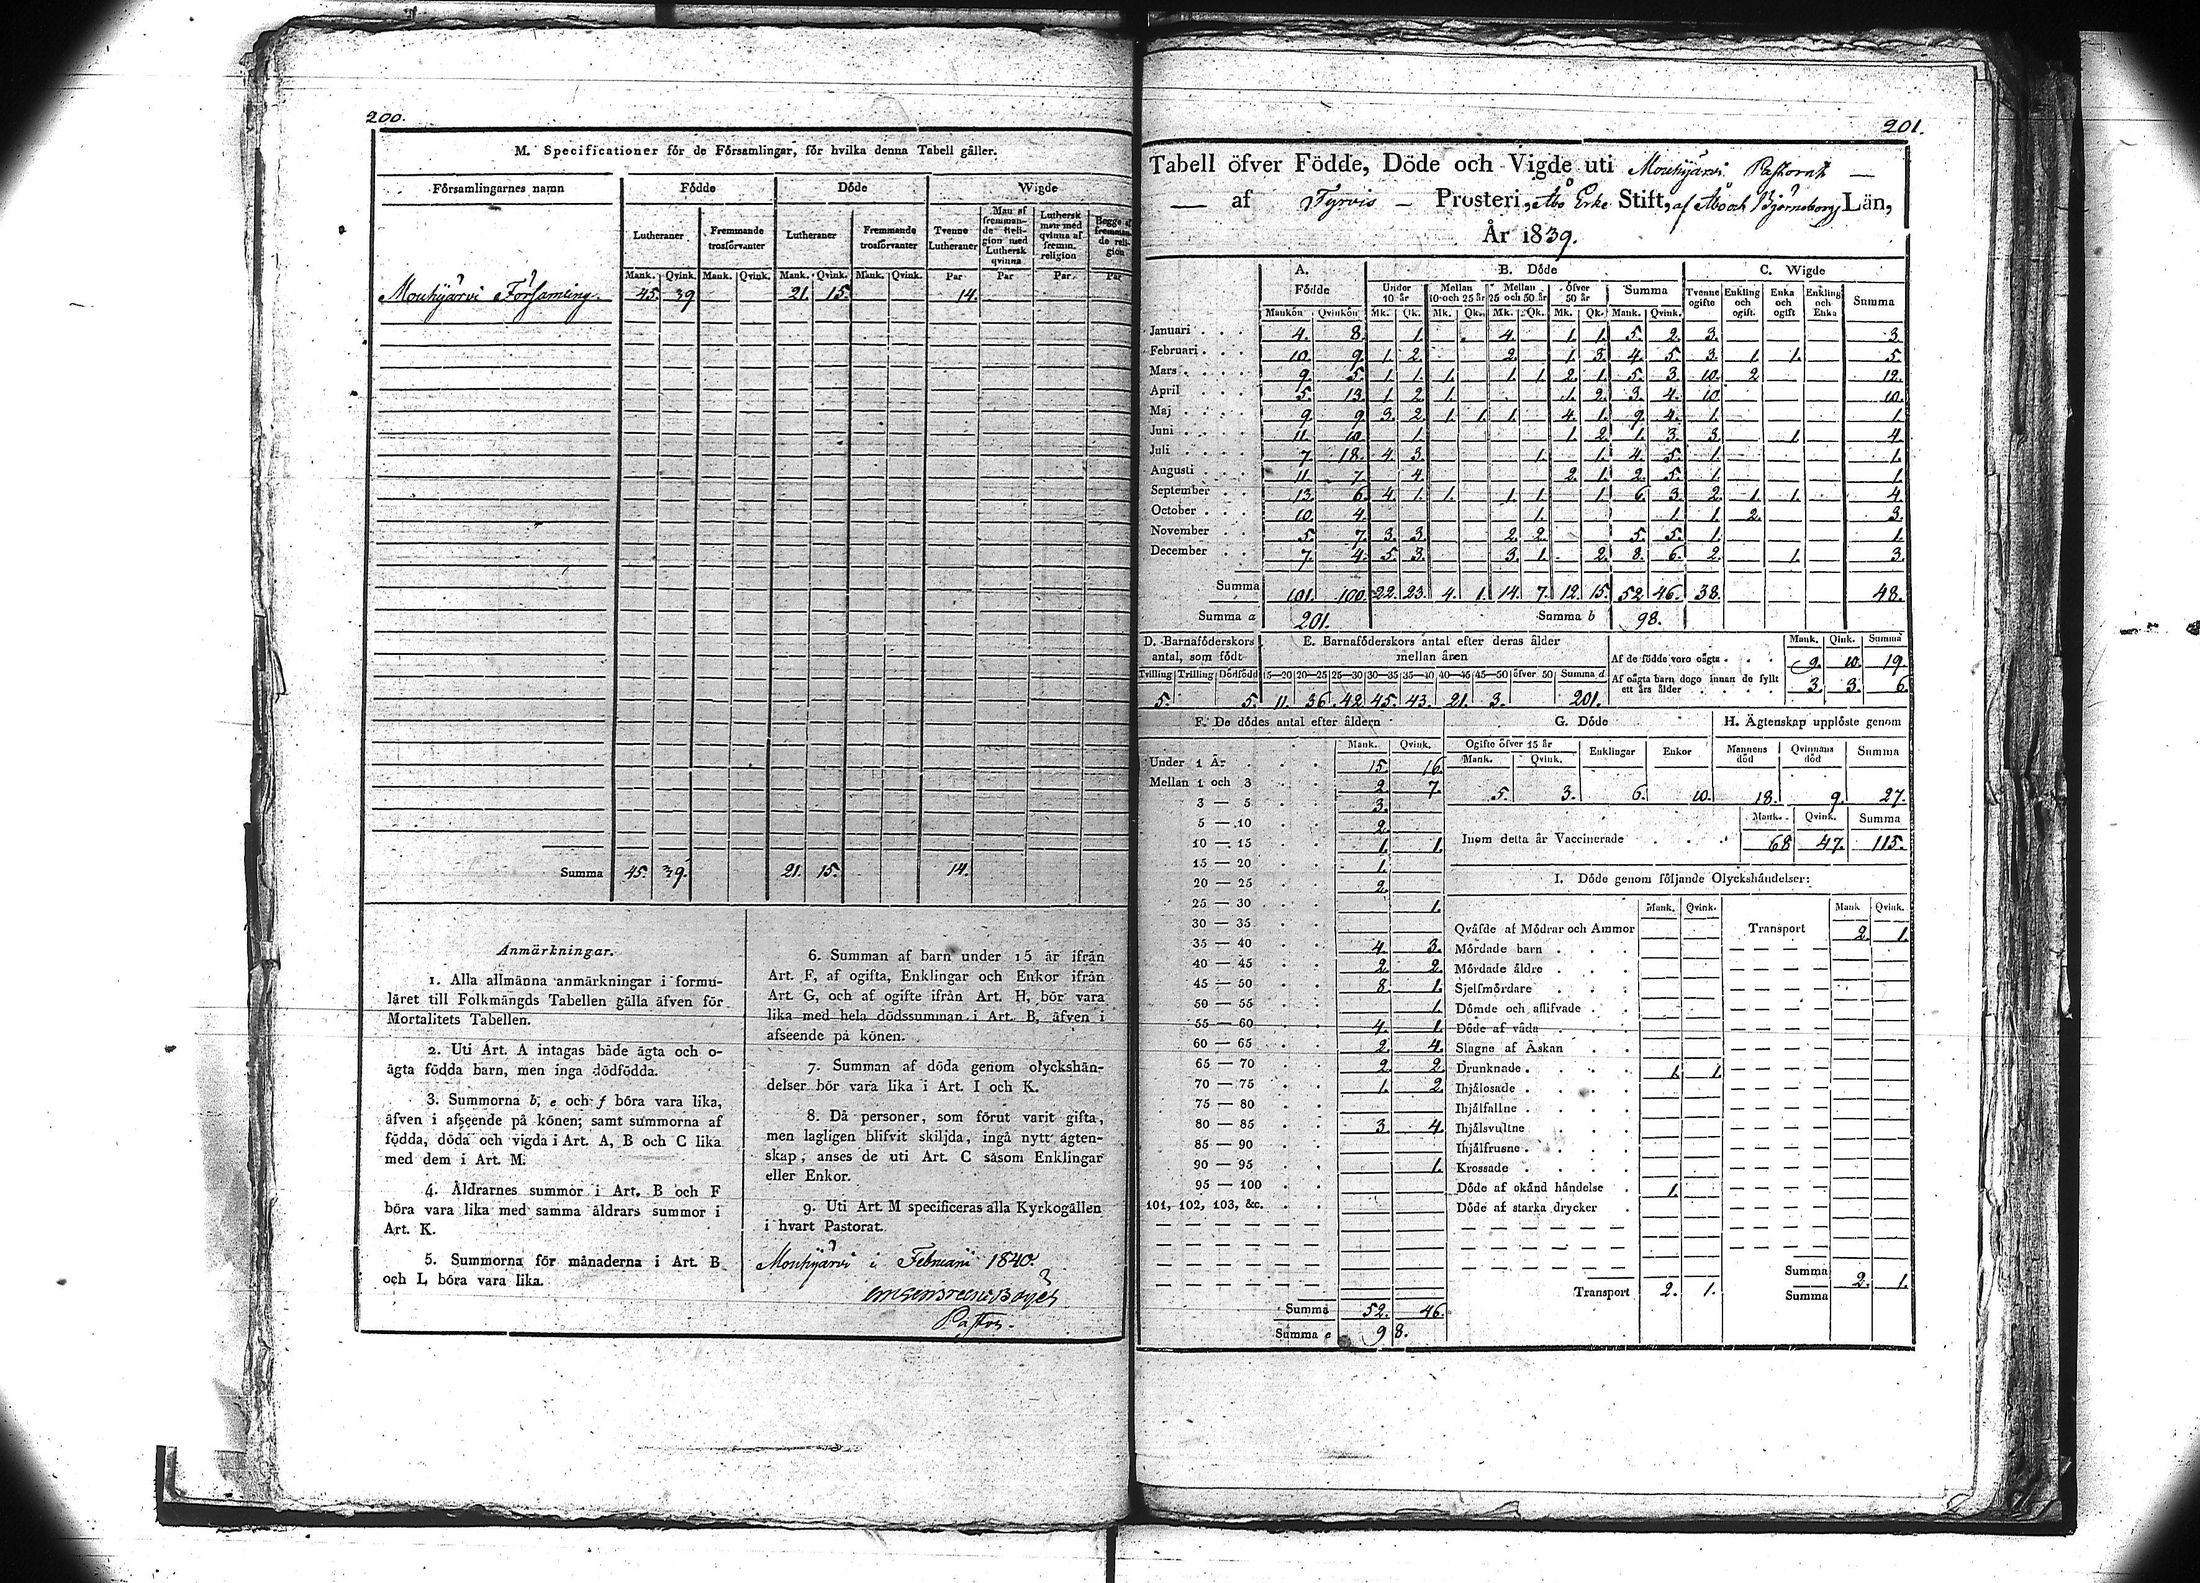 200.
M. Specificationer för de Församlingar, för hvilka denna Tabell gäller.
Församlingarnes namn | Födde | Döde | Wigde
Lutheraner | Fremmande trosförvanter | Lutheraner | Fremmande trosförvanter | Tvenne Lutheraner | Man af fremmande Religion med Luthersk qvinna | Luthersk man med qvinna af fremm. religion | Begge af fremmande religion
Mank. | Qvink. | Mank. | Qvink. | Mank. | Qvink. | Mank. | Qvink. | Par | Par | Par | Par
Mouhijärvi Församling. 45. 39 21. 15. 14.
Summa 45. 39. 21. 15. 14.
Anmärkningar.
1. Alla allmänna anmärkningar i formu-
läret till Folkmängds Tabellen gälla äfven för
Mortalitets Tabellen.
2. Uti Art. A intagas både ägta och o-
ägta födda barn, men inga dödfödda.
3. Summorna b, e och f böra vara lika,
äfven i afseende på könen; samt summorna af
födda, döda och vigda i Art. A, B och C lika
med dem i Art. M.
4. Åldrarnes summor i Art. B och F
böra vara lika med samma åldrars summor i
Art. K.
5. Summorna för månaderna i Art. B
och L böra vara lika.
6. Summan af barn under 15 år ifrån
Art. F, af ogifta, Enklingar och Enkor ifrån
Art. G, och af ogifte ifrån Art. H, bör vara
lika med hela dödssumman i Art. B, äfven i
afseende på könen.
7. Summan af döda genom olyckshän-
delser bör vara lika i Art. I och K.
8. Då personer, som förut varit gifta,
men lagligen blifvit skiljda, ingå nytt ägten-
skap, anses de uti Art. C såsom Enklingar
eller Enkor.
9. Uti Art. M specificeras alla Kyrkogällen
i hvart Pastorat.
Mouhijärvi i Februarii 1840.
Pastor.
201.
Tabell öfver Födde, Döde och Vigde uti Mouhijärvi Pastorat —
— af Tyrvis — Prosteri, Åbo Erke Stift, af Åbo och Björneborgs Län,
År 1839.
A. Födde | B. Döde | C. Wigde
Under 10 år | Mellan 10 och 25 år | Mellan 25 och 50 år | öfver 50 år | Summa | Tvenne ogifte | Enkling och ogift | Enka och ogift | Enkling och Enka | Summa
Mankön | Qvinkön | Mk. | Qk. | Mk. | Qk. | Mk. | Qk. | Mk. | Qk. | Mank. | Qvink.
Januari . . . 4. 8. 1. 4. 1. 1. 5. 2. 3. 3.
Februari . . . 10. 9. 1. 2. 2. 1. 3. 4. 5. 3. 1. 1. 5.
Mars . . . . 9. 5. 1. 1. 1. 1. 1. 2. 1. 5. 3. 10. 2. 12.
April . . . 5. 13. 1. 2. 1. 1. 2. 3. 4. 10. 10.
Maj . . . . 9. 9. 3. 2. 1. 1. 1. 4. 1. 9. 4. 1. 1.
Juni . . . . 11. 10. 1. 1. 2. 1. 3. 3. 1. 4.
Juli . . . . 7. 18. 4. 3. 1. 1. 4. 5. 1. 1.
Augusti . . . 11. 7. 4. 2. 1. 2. 5. 1. 1.
September . . 13. 6. 4. 1. 1. 1. 1. 1. 6. 3. 2. 1. 1. 4.
October . . . 10. 4. 1. 1. 1. 2. 3.
November . . 5. 7. 3. 3. 2. 2. 5. 5. 1. 1.
December . . 7. 4. 5. 3. 3. 1. 2. 8. 6. 2. 1. 3.
Summa 101. 100. 22. 23. 4. 1. 14. 7. 12. 15. 52. 46. 38. 48.
Summa a 201. Summa b 98.
D. Barnaföderskors antal, som födt
Tvilling | Trilling | Dödfödd
5. 5.
E. Barnaföderskors antal efter deras ålder mellan åren
15—20 | 20—25 | 25—30 | 30—35 | 35—40 | 40—45 | 45—50 | öfver 50 | Summa d
11. 36. 42. 45. 43. 21. 3. 201.
Mank. | Qink. | Summa
Af de födde voro oägta . . . 9. 10. 19.
Af oägta barn dogo innan de fyllt ett års ålder 3. 3. 6.
F. De dödes antal efter åldern
Mank. Qvink.
Under 1 År 15. 16.
Mellan 1 och 3 2. 7.
3 — 5 3.
5 — 10 2.
10 — 15 1. 1.
15 — 20 1.
20 — 25 2.
25 — 30 1.
30 — 35
35 — 40 4. 3.
40 — 45 2. 2.
45 — 50 8. 1.
50 — 55 1.
55 — 60 4. 1.
60 — 65 2. 4.
65 — 70 2. 2.
70 — 75 1. 2.
75 — 80
80 — 85 3. 4.
85 — 90
90 — 95 1.
95 — 100
101, 102, 103, &c.
Summa 52. 46.
Summa e 98.
G. Döde
Ogifte öfver 15 år | Enklingar | Enkor
Mank. | Qvink.
5. 3. 6. 10.
H. Ägtenskap upplöste genom
Mannens död | Qvinnans död | Summa
18. 9. 27.
Mank. | Qvink. | Summa
Inom detta år Vaccinerade . . . . 68 47. 115.
I. Döde genom följande Olyckshändelser:
Mank. | Qvink. | Mank | Qvink.
Qväfde af Mödrar och Ammor
Transport 2. 1.
Mördade barn
Mördade äldre
Sjelfmördare
Dömde och aflifvade
Döde af våda
Slagne af Åskan
Drunknade 1. 1.
Ihjälosade
Ihjälfallne
Ihjälsvultne
Ihjälfrusne
Krossade
Döde af okänd händelse 1.
Döde af starka drycker
Transport 2. 1.
Summa 2. 1.
Summa